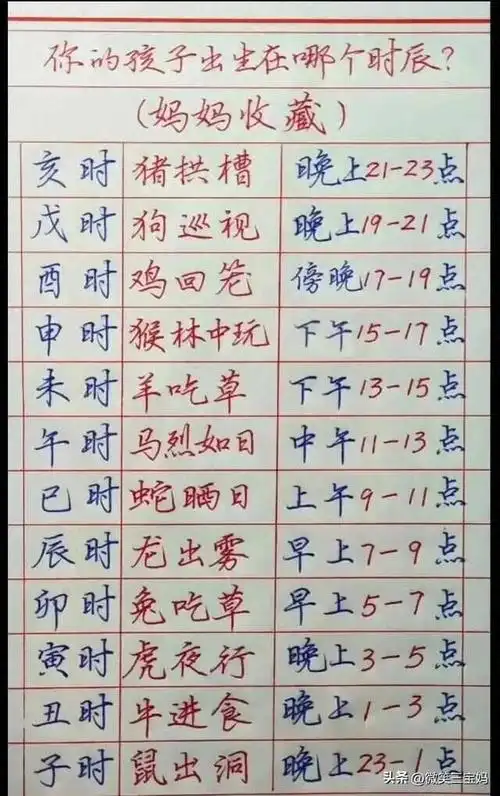 你的孩子出生在哪个时辰?
(妈妈收藏)
亥时 猪拱槽 晚上21-23点
戊时 狗巡视 晚上19-21点
酉时 鸡回笼 傍晚17-19点
申时 猴林中玩 下午15-17点
未时 羊吃草 下午13-15点
午时 马烈如日 中午11-13点
巳时 蛇晒日 上午9-11点
辰时 龙出雾 早上7-9点
卯时 兔吃草 早上5-7点
寅时 虎夜行 晚上3-5点
丑时 牛进食 晚上1-3点
子时 鼠出洞 晚上23-1点
头条 @微笑三宝妈